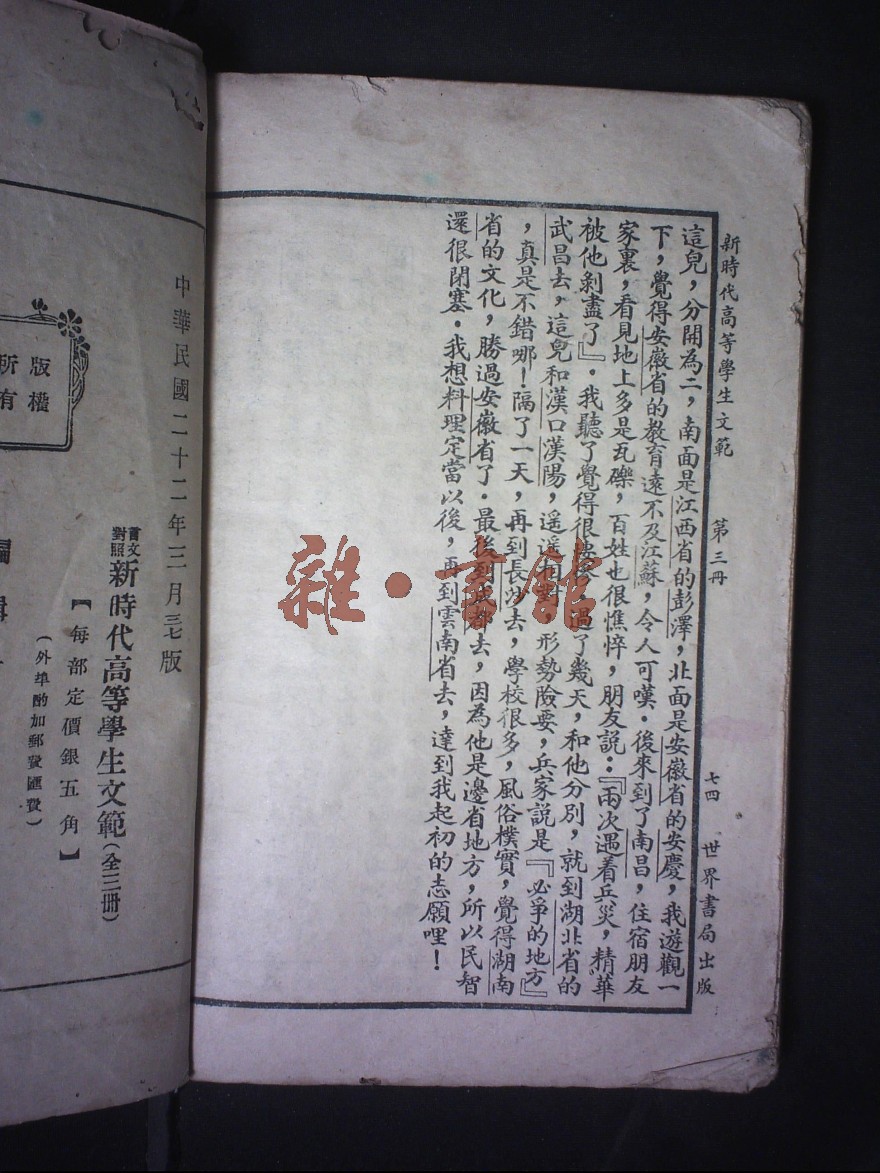 新時代高等學生文範　第三冊　七四　世界書局出版
這兒，分開為二，南面是江西省的彭澤，北面是安徽省的安慶，我遊觀一
下，覺得安徽省的教育遠不及江蘇，令人可嘆．後來到了南昌，住宿朋友
家裏，看見地上多是瓦礫，百姓也很憔悴，朋友説：『兩次遇着兵災，精華
被他剝盡了』．我聽了覺得很悽慘．過了幾天，和他分別，就到湖北省的
武昌去，這兒和漢口漢陽，遥遥相對，形勢險要，兵家説是『必爭的地方』
，真是不錯哪！隔了一天，再到長沙去，學校很多，風俗樸實，覺得湖南
省的文化，勝過安徽省了．最後到成都去，因為他是邊省地方，所以民智
還很閉塞．我想料理定當以後，再到雲南省去，達到我起初的志願哩！
雜·書館
中華民國二十二年三月三七版
言文對照新時代高等學生文範（全三冊）
【每部定價銀五角】
（外埠酌加郵費匯費）
版權
所有
編輯